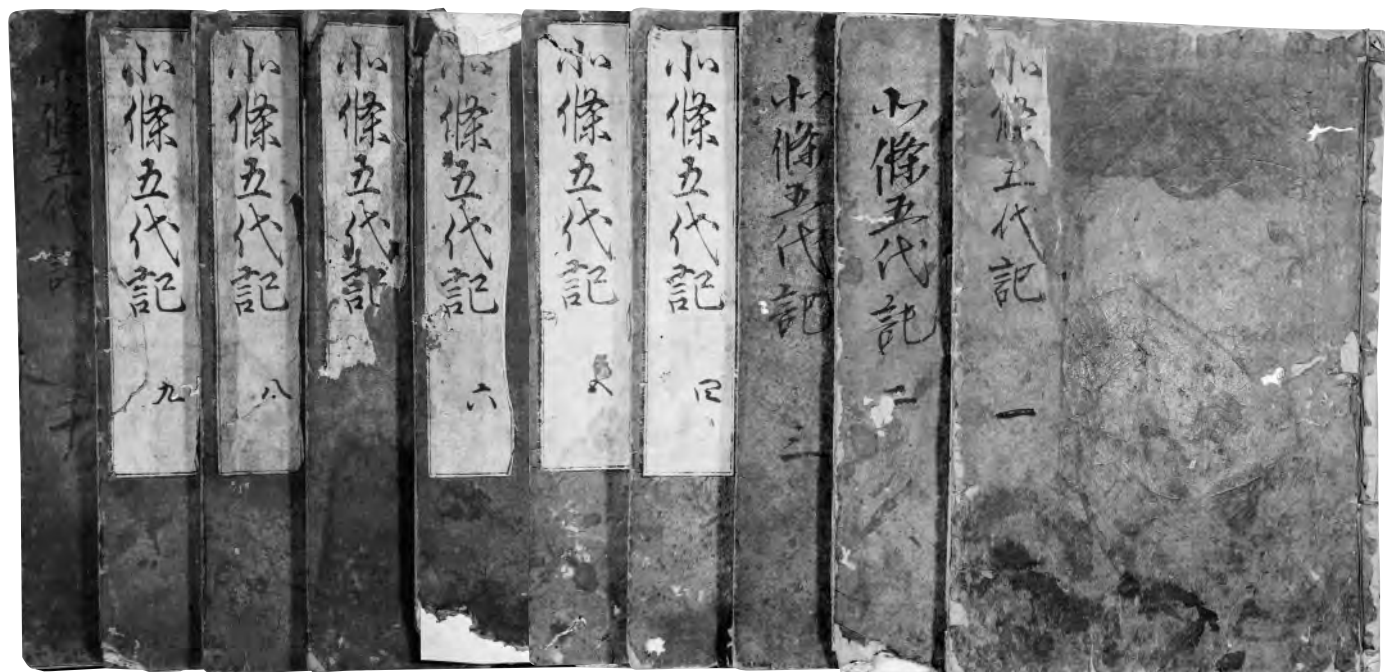 北條五代記 一
北條五代記 二
北條五代記 三
北條五代記 四
北條五代記
北條五代記 六
北條五代記
北條五代記 八
北條五代記 九
北條五代記 十